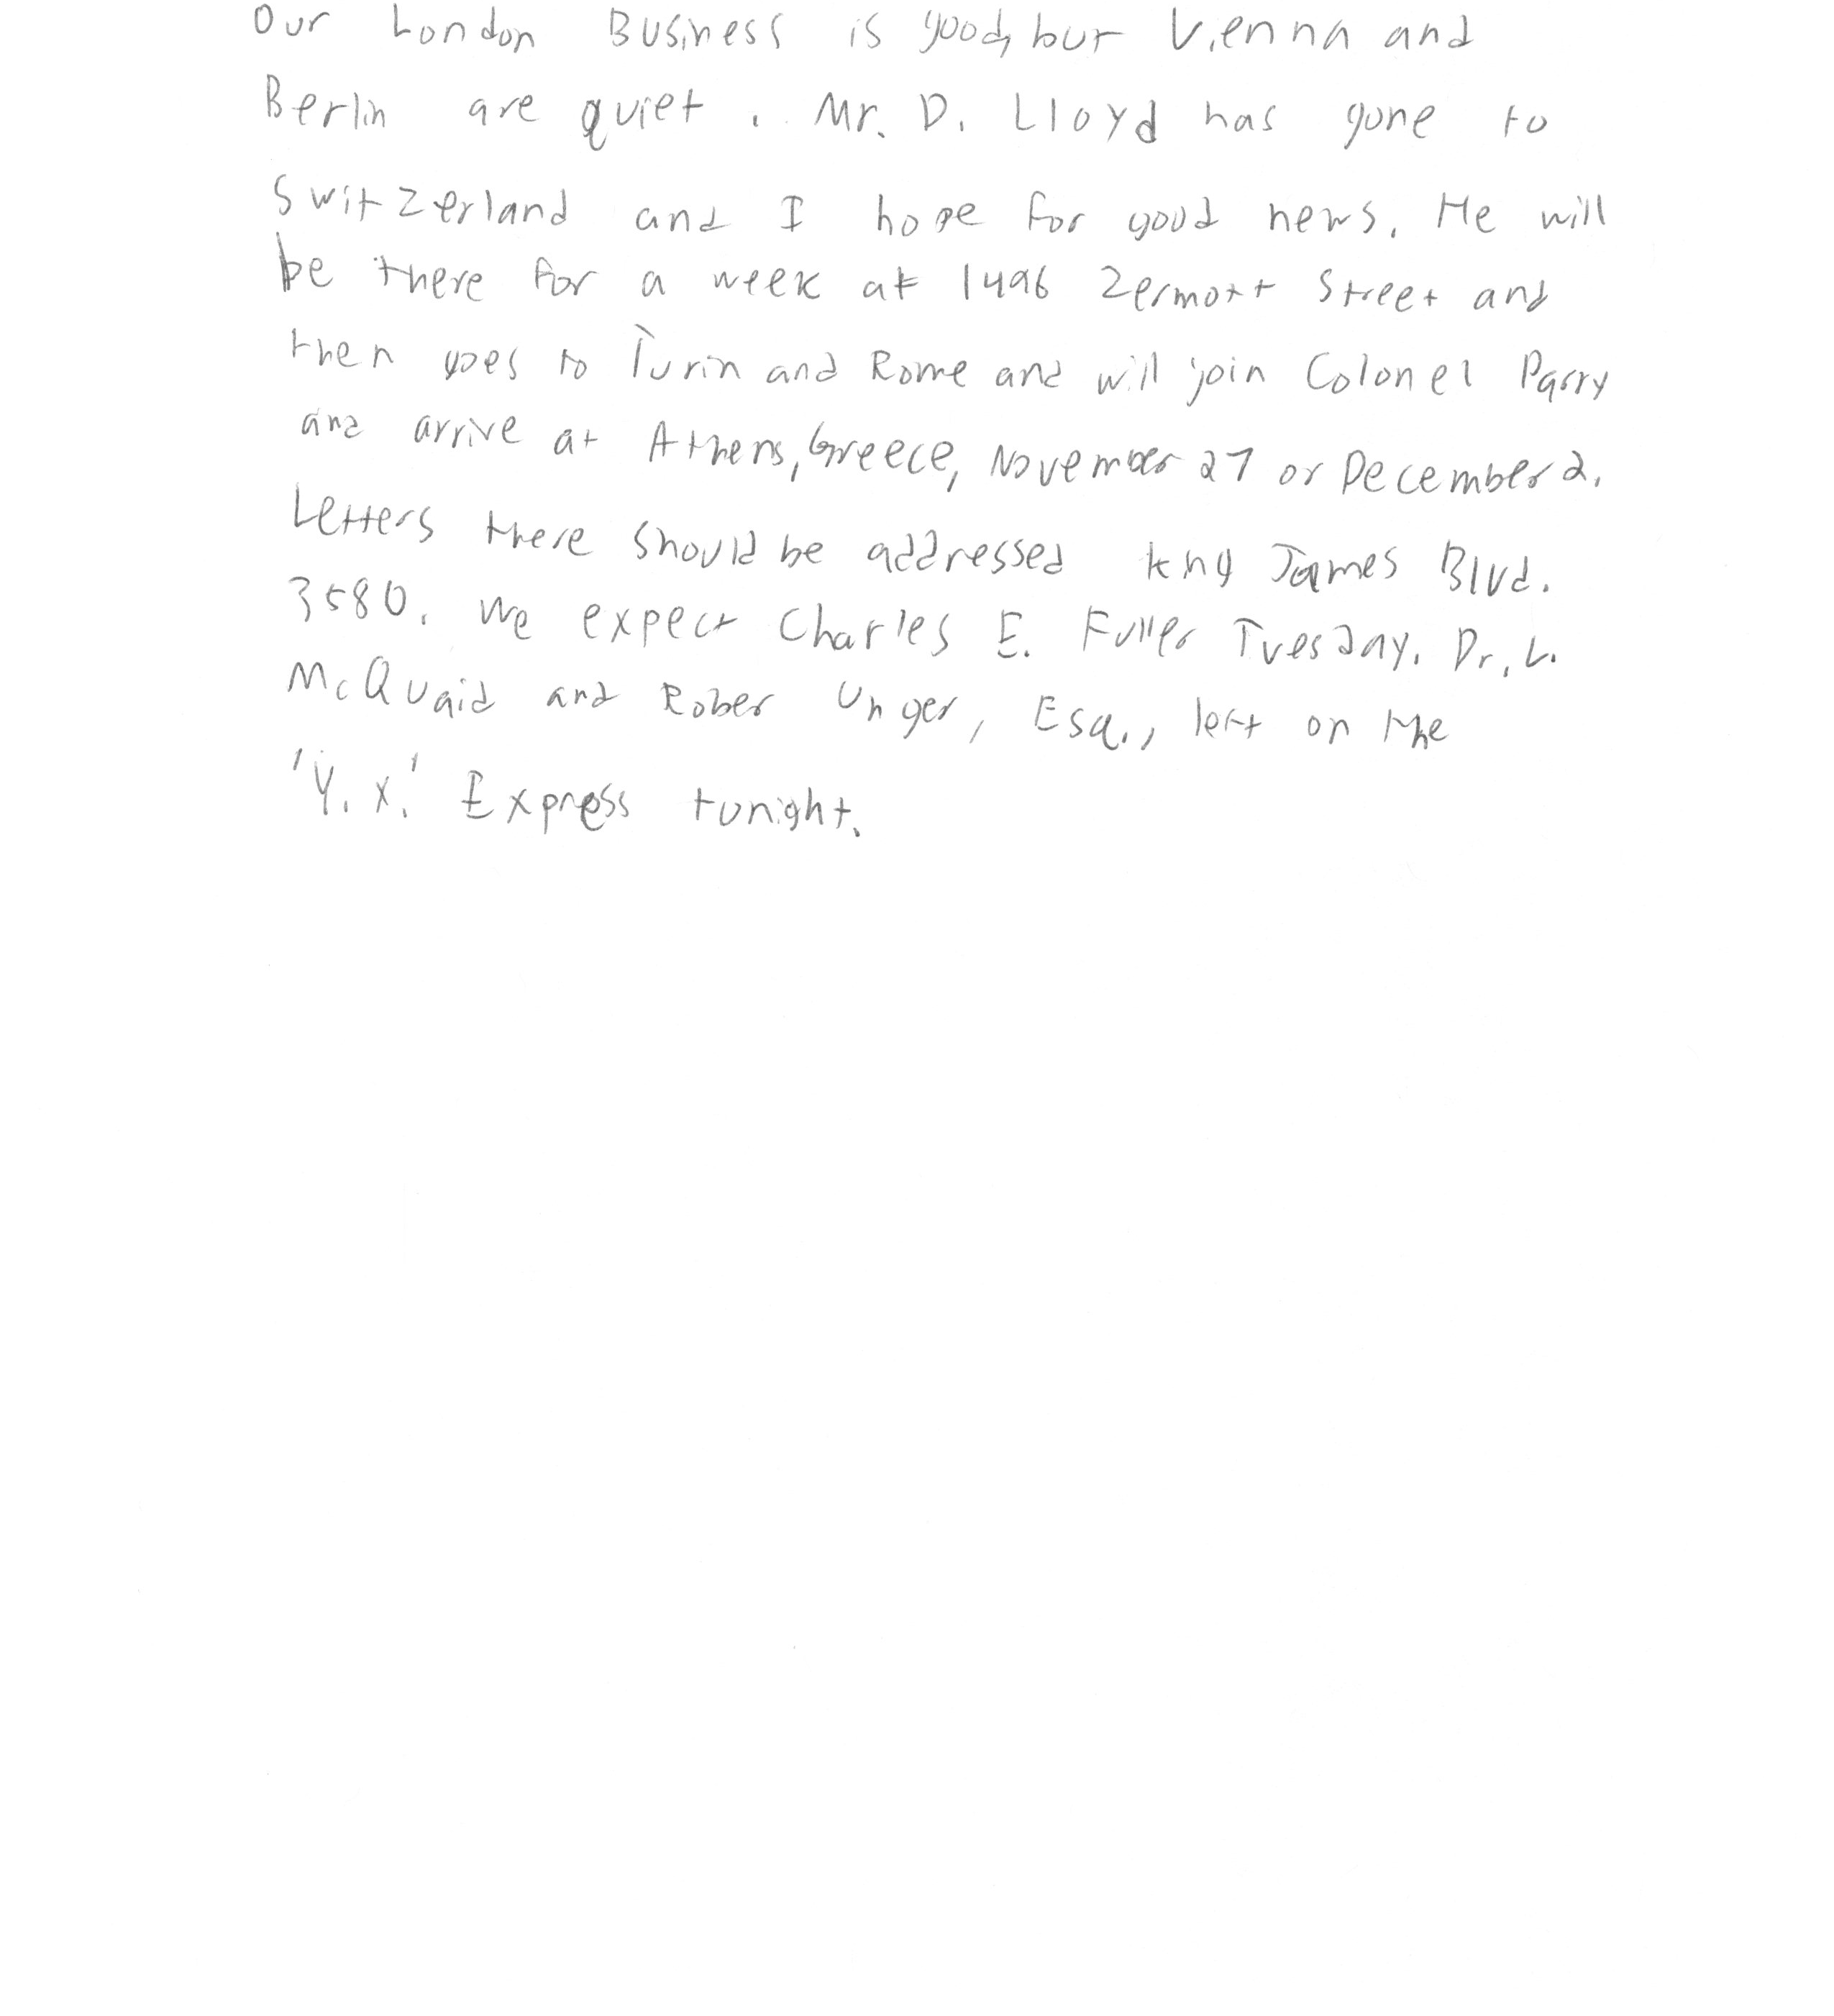 Our London Business is good, but Vienna and
Berlin are quiet. Mr. D. Lloyd has gone to
Switzerland and I hope for good news. He will
be there for a week at 1496 Zermott Street and
then goes to Turin and Rome and will join Colonel Parry
and arrive at Athens, Greece, November 27 or December 2.
Letters there should be addressed King James Blvd.
3580. We expect Charles E. Fuller Tuesday. Dr. L.
McQuaid and Rober Unger, Esq., left on the
'Y.X.' Express tonight.